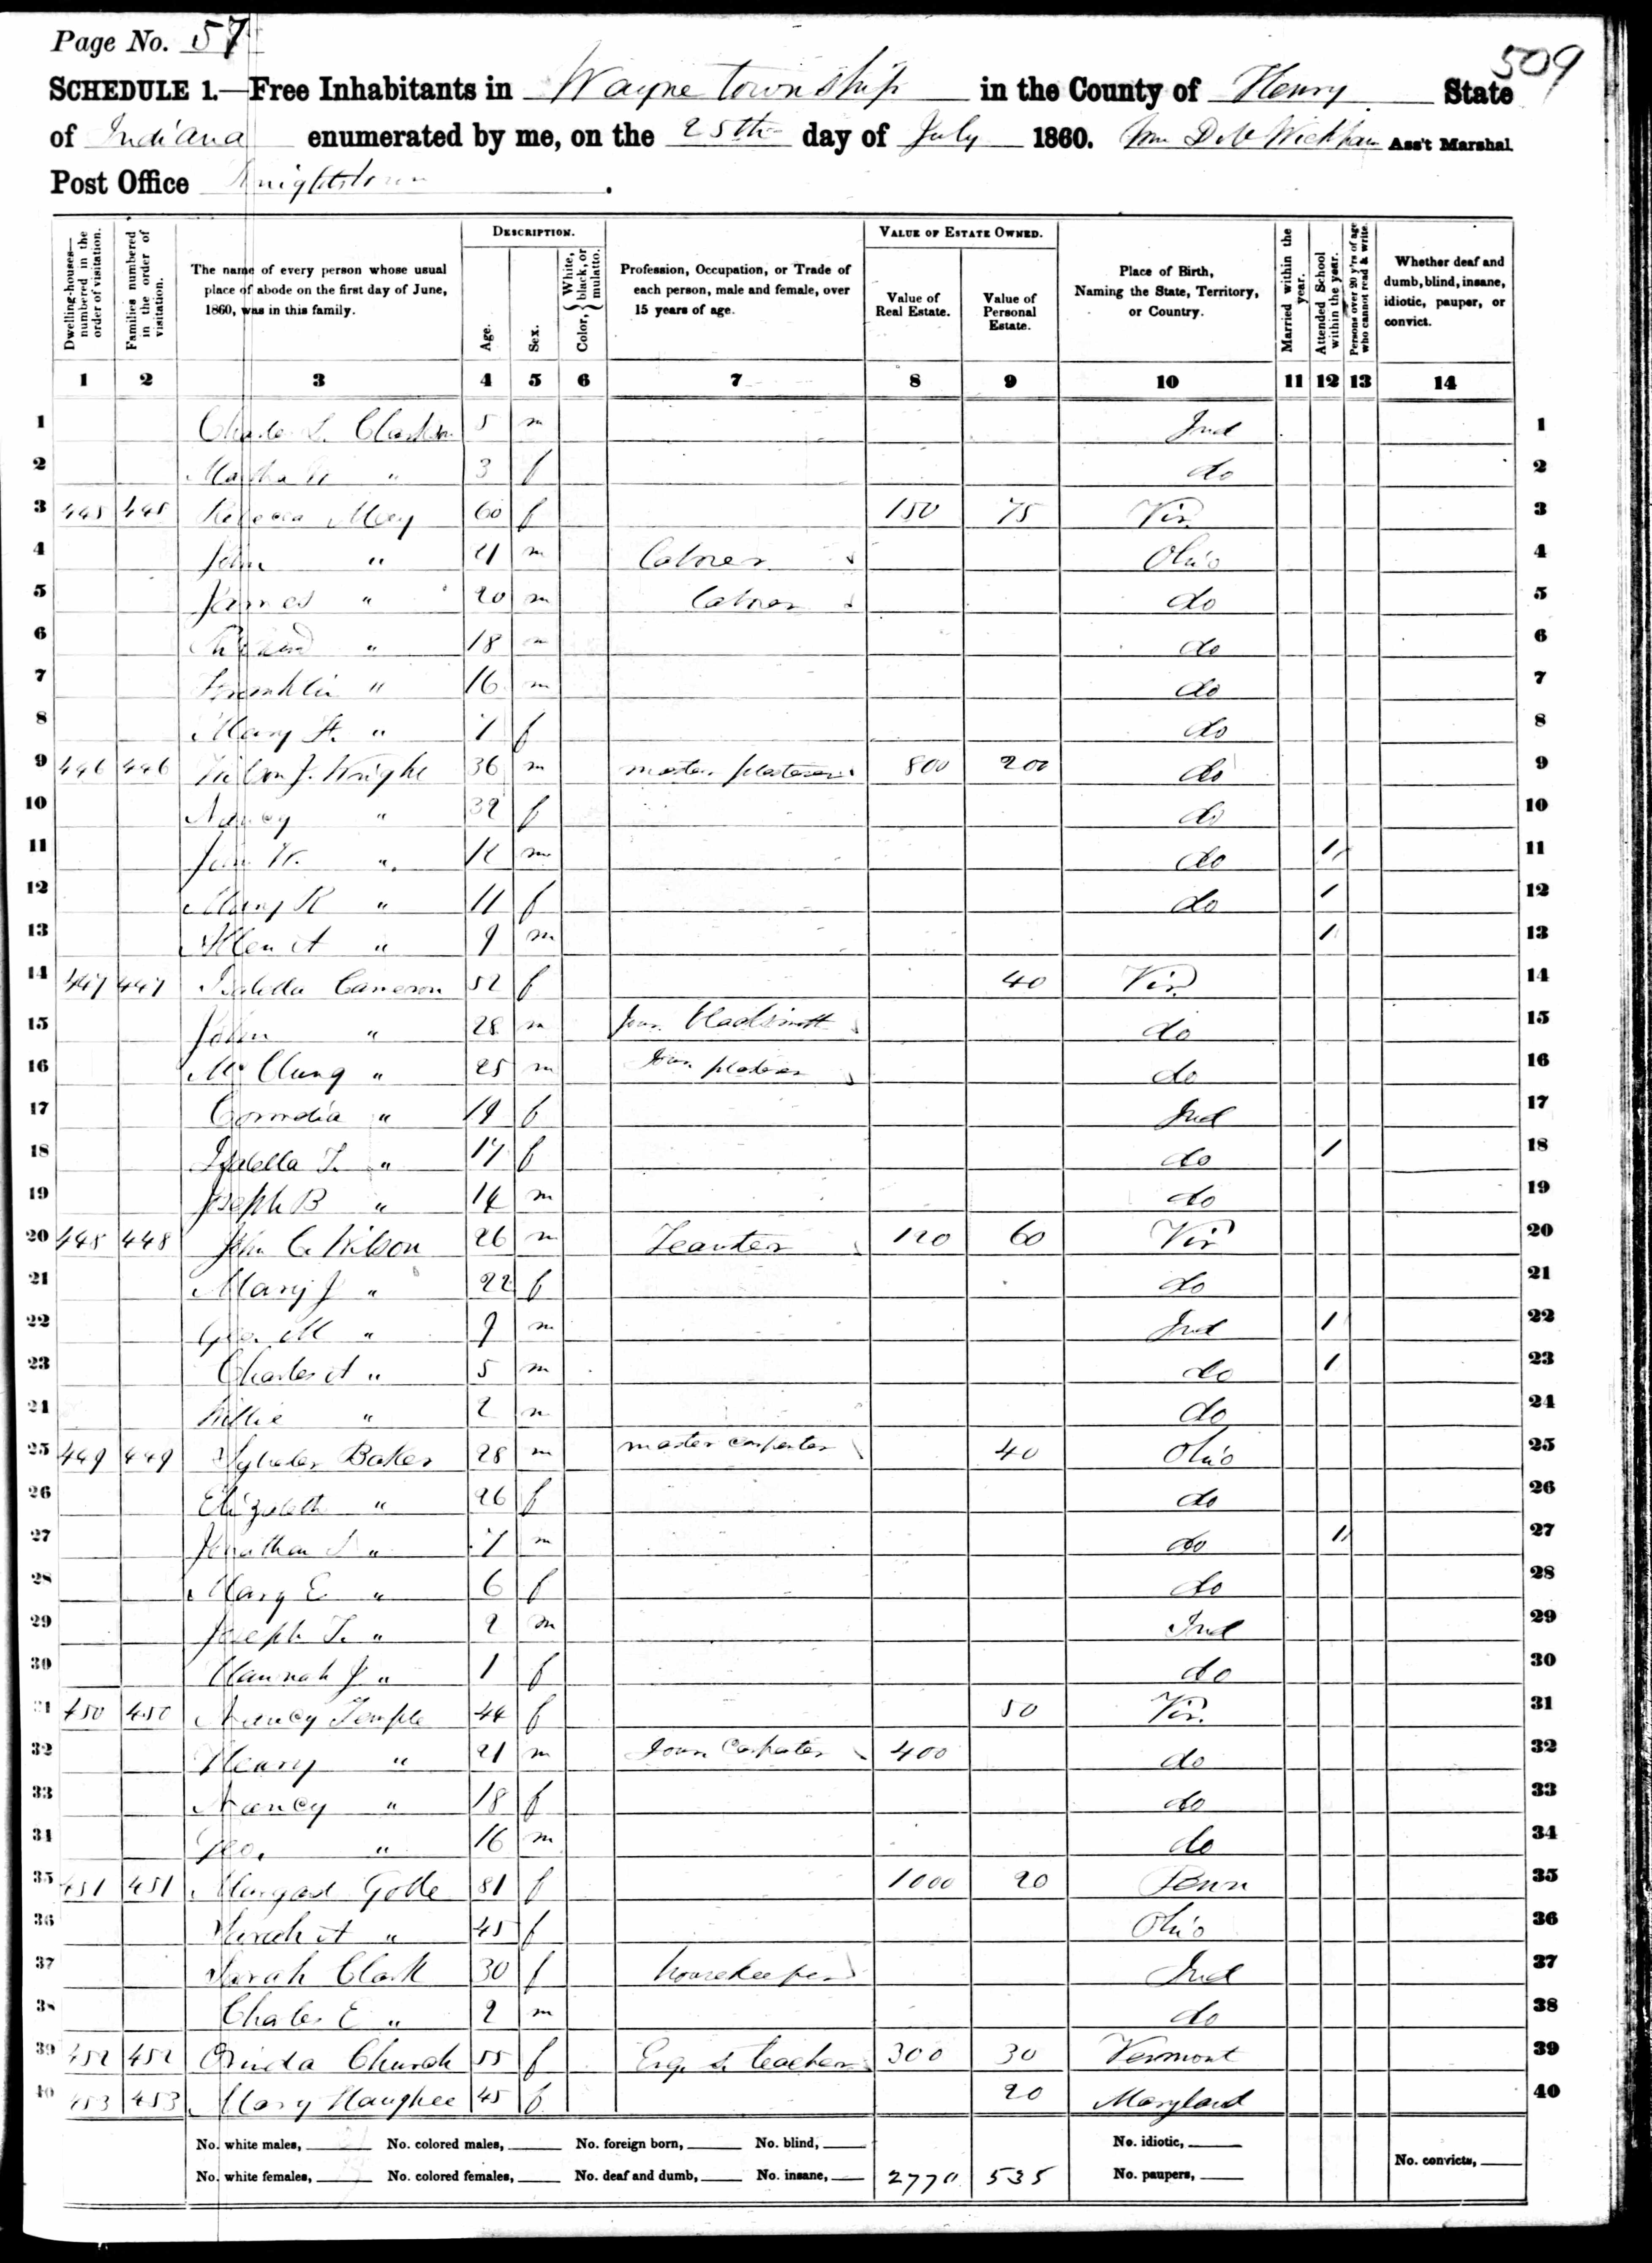 Page No. 57
509
SCHEDULE 1.—Free Inhabitants in Wayne township in the County of Henry State
of Indiana enumerated by me, on the 25th day of July 1860. Wickham Ass't Marshal.
Post Office Knightstown.
Dwelling-houses—numbered in the order of visitation.
Families numbered in the order of visitation.
The name of every person whose usual place of abode on the first day of June, 1860, was in this family.
DESCRIPTION.
Age.
Sex.
Color, { White, black, or mulatto.
Profession, Occupation, or Trade of each person, male and female, over 15 years of age.
VALUE OF ESTATE OWNED.
Value of Real Estate.
Value of Personal Estate.
Place of Birth, Naming the State, Territory, or Country.
Married within the year.
Attended School within the year.
Persons over 20 y'rs of age who cannot read & write.
Whether deaf and dumb, blind, insane, idiotic, pauper, or convict.
1 2 3 4 5 6 7 8 9 10 11 12 13 14
1 Charles L. 5 m Ind 1
2 Martha " 3 f do 2
3 445 445 Rebecca 60 f 150 75 Vir. 3
4 John " 21 m Laborer Ohio 4
5 James " 20 m Laborer do 5
6 " 18 m do 6
7 Franklin " 16 m do 7
8 Mary " 7 f do 8
9 446 446 J. Wright 36 m master plasterer 800 200 do 9
10 Nancy " 32 f do 10
11 W. " m do 1 11
12 Mary " 11 f do 1 12
13 Allen A " 9 m 1 13
14 447 447 Isabella Cameron 52 f 40 Vir. 14
15 John " 28 m Jour. blacksmith do 15
16 McClung " 25 m Jour. do 16
17 " 19 f Ind 17
18 Isabella " 17 f do 1 18
19 Joseph B " 14 m do 19
20 448 448 John C. Wilson 26 m Teamster 120 60 Vir 20
21 Mary J " 22 f do 21
22 Geo. M " 9 m Ind 1 22
23 Charles A " 5 m do 1 23
24 Willie " 2 m do 24
25 449 449 Sylvester Baker 28 m master carpenter 40 Ohio 25
26 Elizabeth " 26 f do 26
27 Jonathan " 7 m do 1 27
28 Mary E " 6 f do 28
29 Joseph " 2 m Ind 29
30 Hannah J " 1 f do 30
31 450 450 Nancy Temple 44 f 50 Vir. 31
32 Henry " 21 m Jour Carpenter 400 do 32
33 Nancy " 18 f do 33
34 Geo. " 16 m do 34
35 451 451 Margaret 81 f 1000 20 Penn 35
36 Sarah A " 45 f Ohio 36
37 Sarah Clark 30 f housekeeper Ind 37
38 Charles E " 2 m do 38
39 452 452 Church 55 f teacher 300 30 Vermont 39
40 453 453 Mary 45 f 20 Maryland 40
No. white males, No. colored males, No. foreign born, No. blind, No. idiotic,
No. white females, No. colored females, No. deaf and dumb, No. insane, 2770 535 No. paupers, No. convicts,